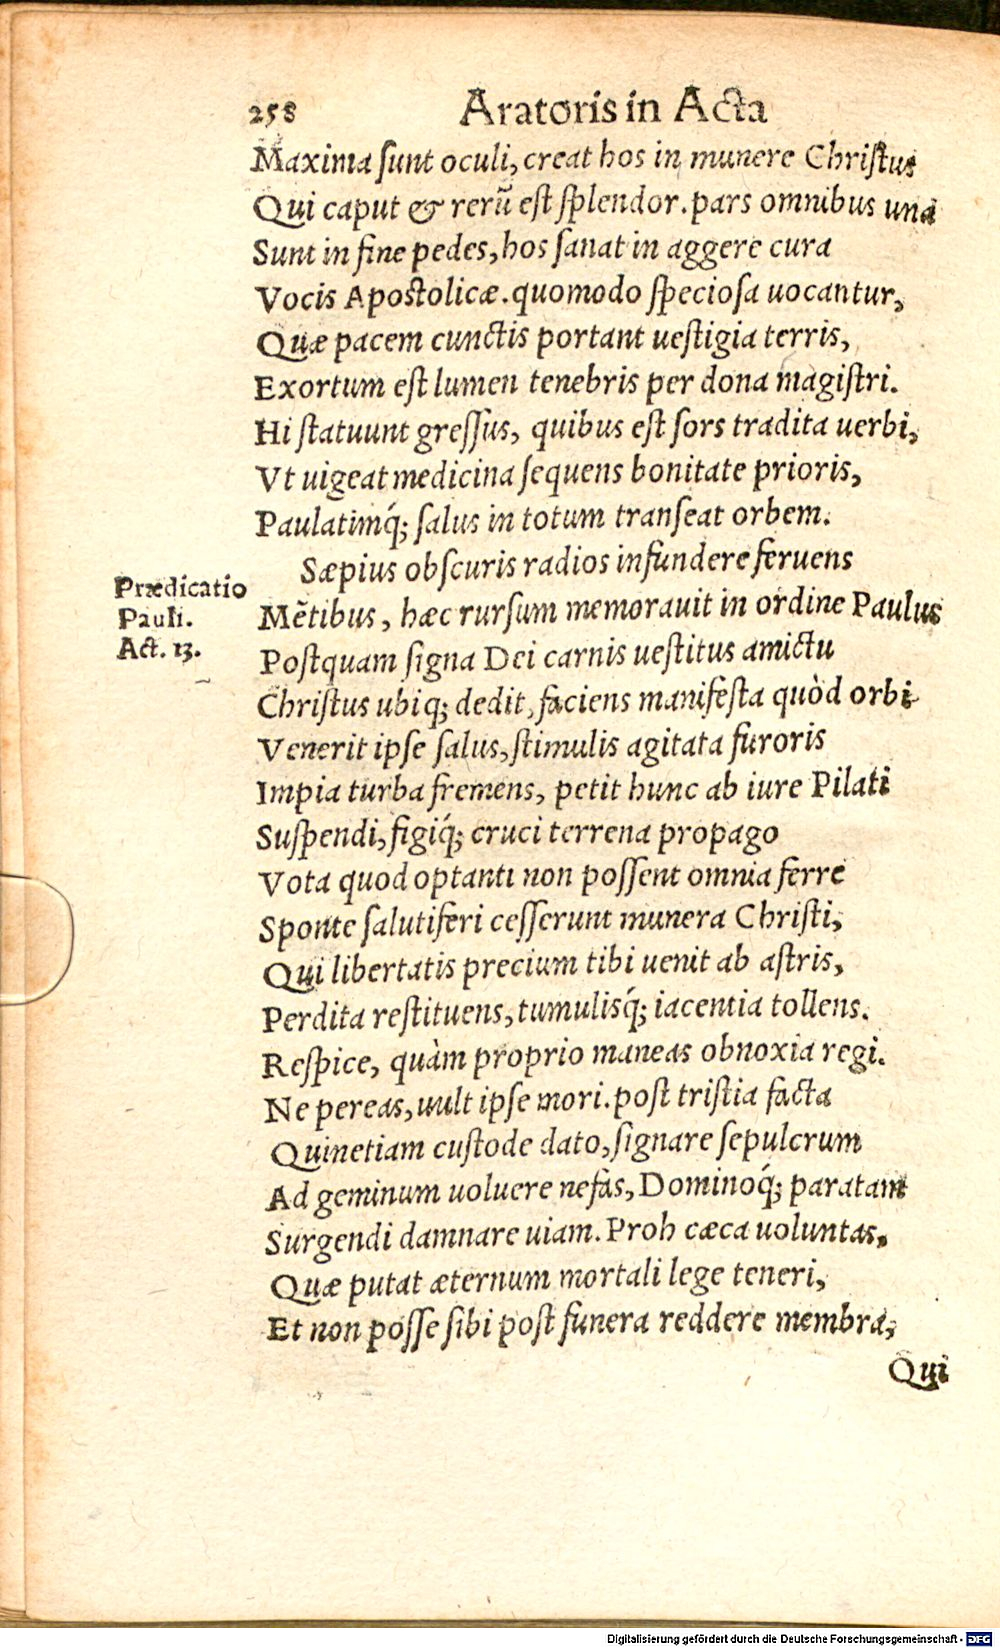 258 Aratoris in Acta
Maxima ſunt oculi, creat hos in munere Chriſtus
Qui caput & rerū eſt ſplendor. pars omnibus una
Sunt in fine pedes, hos ſanat in aggere cura
Vocis Apoſtolicæ. quomodo ſpecioſa uocantur,
Quæ pacem cunctis portant ueſtigia terris,
Exortum eſt lumen tenebris per dona magiſtri.
Hi ſtatuunt greſſus, quibus eſt ſors tradita uerbi,
Vt uigeat medicina ſequens bonitate prioris,
Paulatimq́; ſalus in totum tranſeat orbem.
Sæpius obſcuris radios infundere feruens
Mẽtibus, hæc rurſum memorauit in ordine Paulus
Poſtquam ſigna Dei carnis ueſtitus amictu
Chriſtus ubiq; dedit, faciens manifeſta quòd orbi
Venerit ipſe ſalus, ſtimulis agitata furoris
Impia turba fremens, petit hunc ab iure Pilati
Suſpendi, figiq́; cruci terrena propago
Vota quod optanti non poſſent omnia ferre
Sponte ſalutiferi ceſſerunt munera Chriſti,
Qui libertatis precium tibi uenit ab aſtris,
Perdita reſtituens, tumulisq́; iacentia tollens.
Reſpice, quàm proprio maneas obnoxia regi.
Ne pereas, uult ipſe mori. poſt triſtia facta
Quinetiam cuſtode dato, ſignare ſepulcrum
Ad geminum uoluere nefas, Dominoq́; paratam
Surgendi damnare uiam. Proh cæca uoluntas,
Quæ putat æternum mortali lege teneri,
Et non poſſe ſibi poſt funera reddere membra,
Qui
Prædicatio
Pauli.
Act. 13.
Digitalisierung gefördert durch die Deutsche Forschungsgemeinschaft - DFG